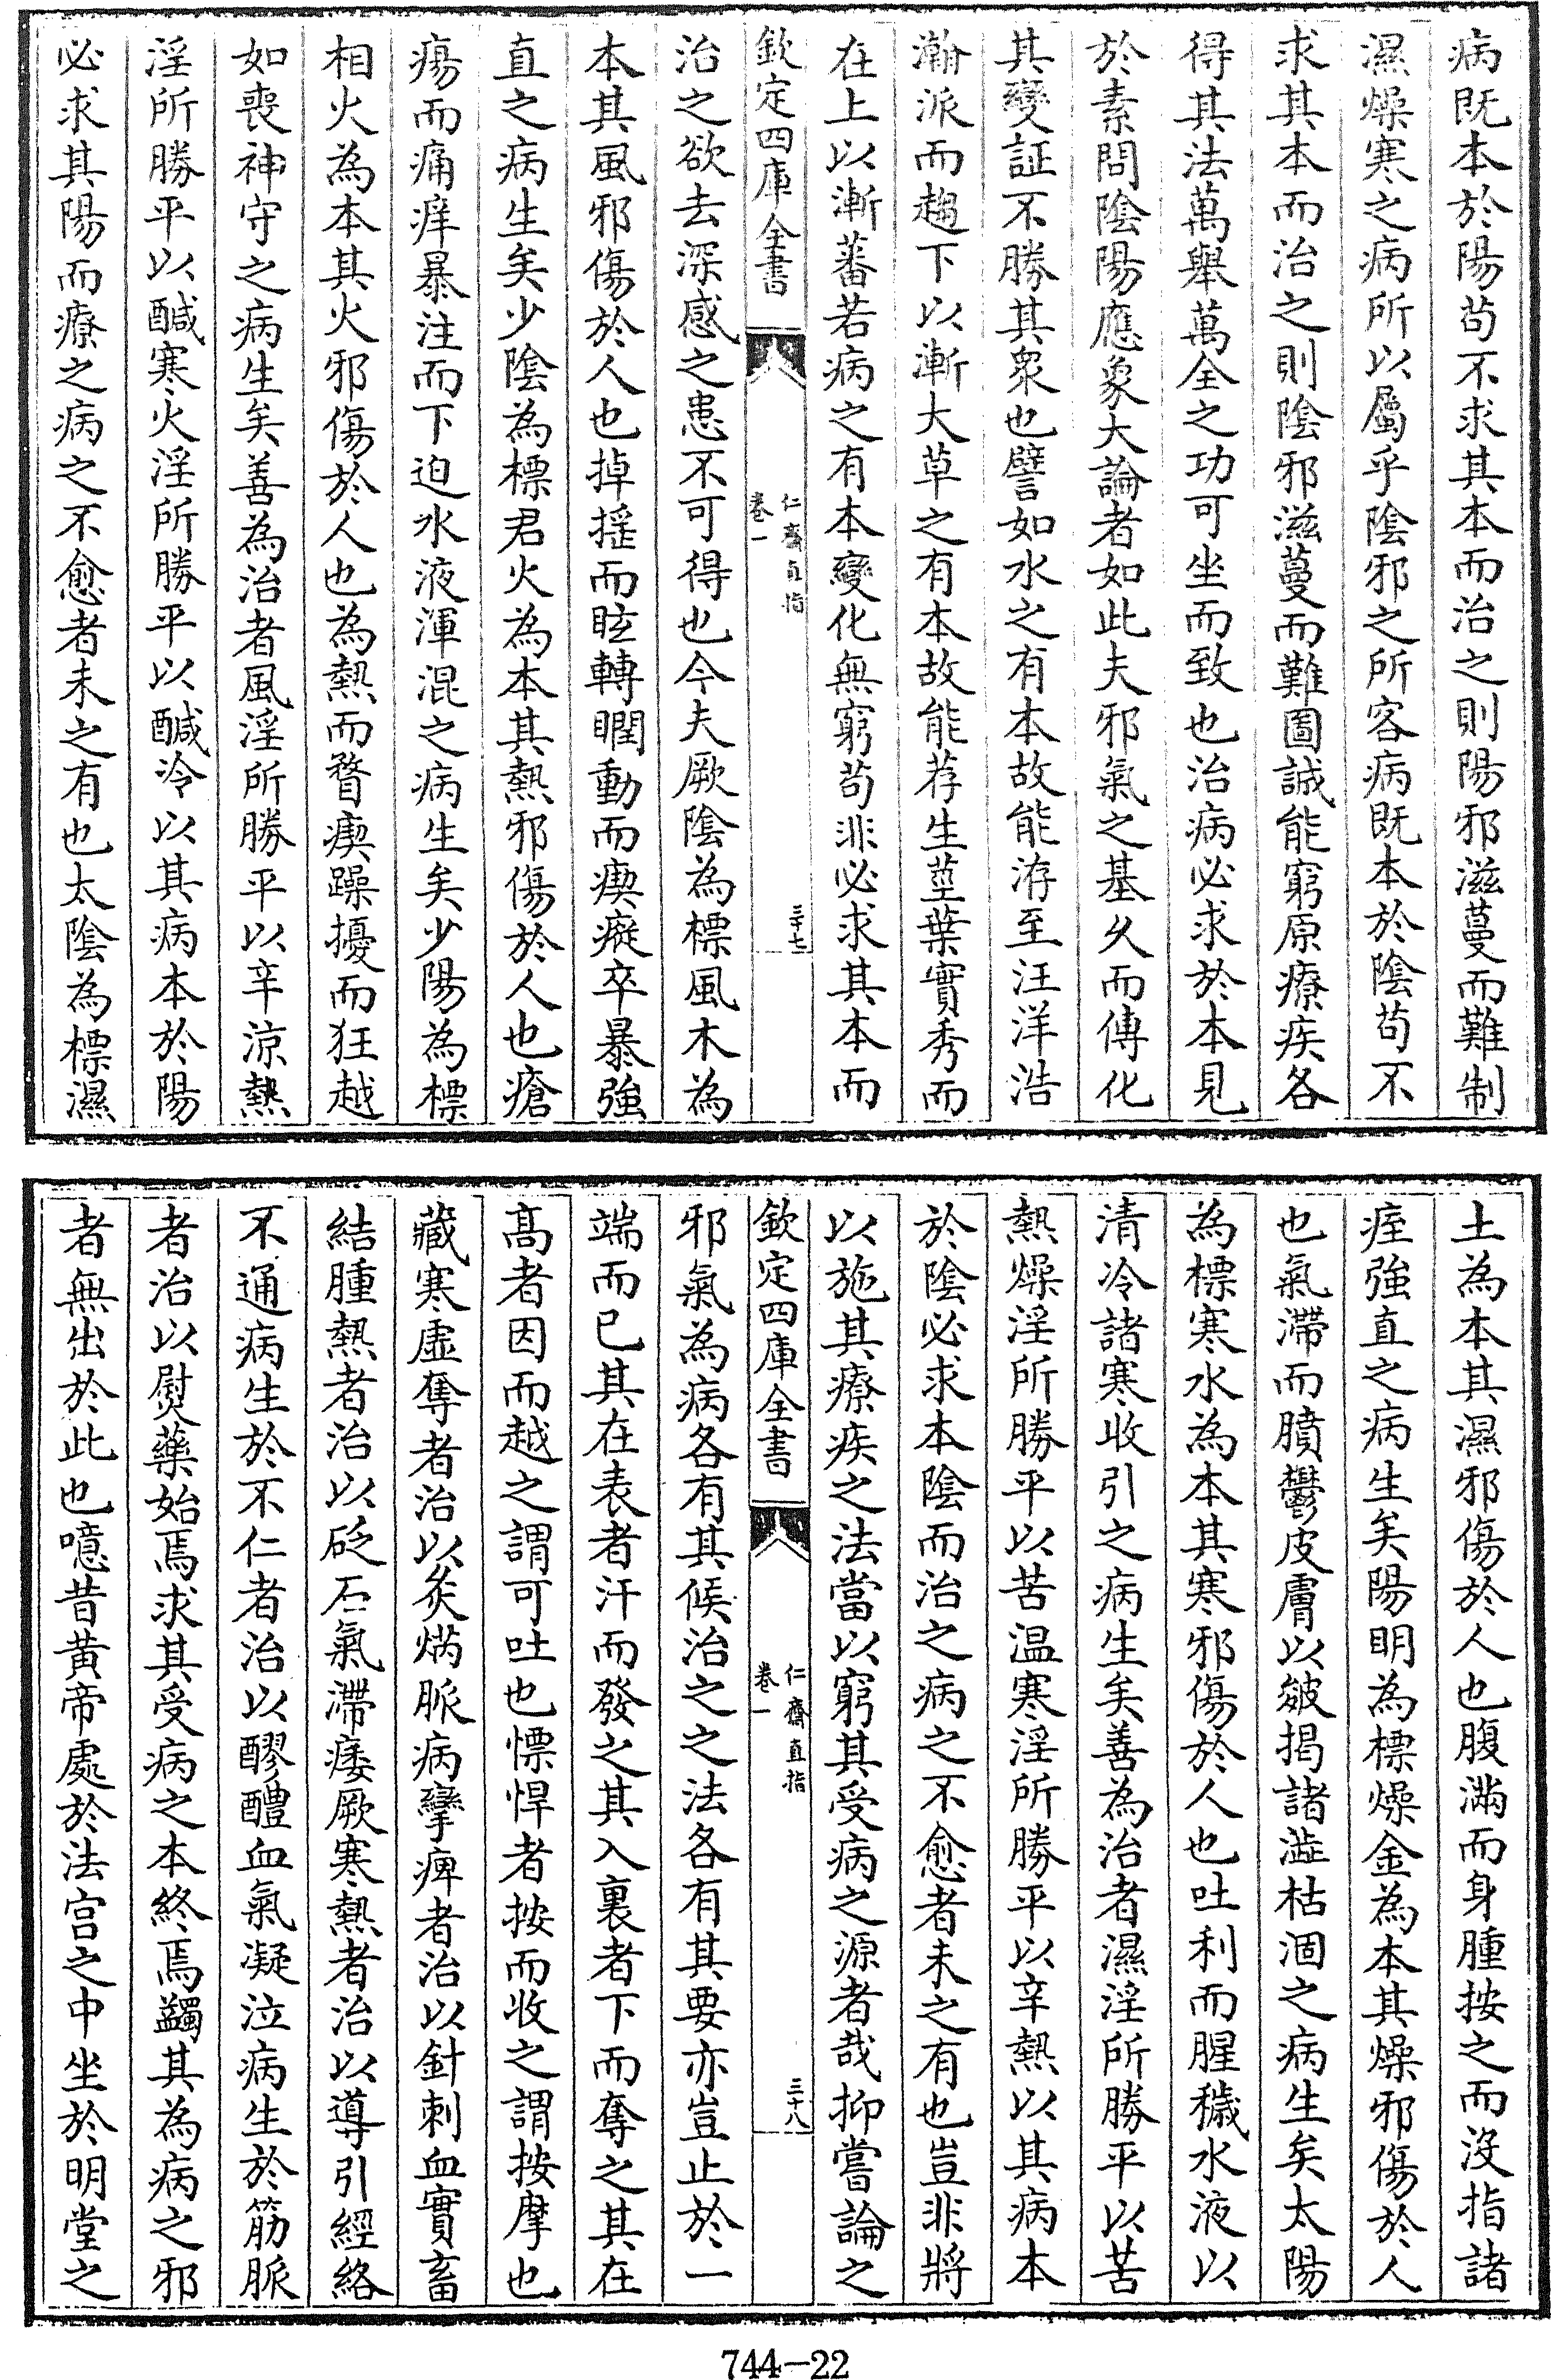 病既本於陽苟不求其本而治之則陽邪滋蔓而難制
濕燥寒之病所以屬乎陰邪之所客病既本於陰苟不
求其本而治之則陰邪滋蔓而難圖誠能窮原療疾各
得其法萬舉萬全之功可坐而致也治病必求於本見
於素問陰陽應象大論者如此夫邪氣之基久而傳化
其變証不勝其衆也譬如水之有本故能洊至汪洋浩
瀚派而趨下以漸大草之有本故能荐生莖葉實秀而
在上以漸蕃若病之有本變化無窮苟非必求其本而
欽定四庫全書
仁齋直指
卷一
三十七
治之欲去深感之患不可得也今夫厥陰為標風木為
本其風邪傷於人也掉搖而眩轉瞤動而瘈瘲卒暴強
直之病生矣少陰為標君火為本其熱邪傷於人也瘡
瘍而痛痒暴注而下迫水液渾混之病生矣少陽為標
相火為本其火邪傷於人也為熱而瞀瘈躁擾而狂越
如喪神守之病生矣善為治者風淫所勝平以辛涼熱
淫所勝平以醎寒火淫所勝平以醎冷以其病本於陽
必求其陽而療之病之不愈者未之有也太陰為標濕
土為本其濕邪傷於人也腹滿而身腫按之而沒指諸
痓強直之病生矣陽明為標燥金為本其燥邪傷於人
也氣滯而膹鬱皮膚以皴揭諸澁枯涸之病生矣太陽
為標寒水為本其寒邪傷於人也吐利而腥穢水液以
清冷諸寒收引之病生矣善為治者濕淫所勝平以苦
熱燥淫所勝平以苦温寒淫所勝平以辛熱以其病本
於陰必求本陰而治之病之不愈者未之有也豈非將
以施其療疾之法當以窮其受病之源者哉抑嘗論之
欽定四庫全書
仁齋直指
卷一
三十八
邪氣為病各有其候治之之法各有其要亦豈止於一
端而已其在表者汗而發之其入裏者下而奪之其在
高者因而越之謂可吐也慓悍者按而收之謂按摩也
藏寒虛奪者治以灸焫脈病攣痺者治以針刺血實畜
結腫熱者治以砭石氣滯痿厥寒熱者治以導引經絡
不通病生於不仁者治以醪醴血氣凝泣病生於筋脈
者治以熨藥始焉求其受病之本終焉蠲其為病之邪
者無出於此也噫昔黄帝處於法宫之中坐於明堂之
744-22